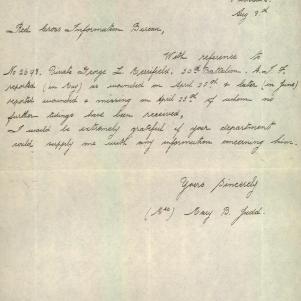 Aug 9th
Red Cross Information Bureau,
With reference to
No 2698. Private George L. Merrifield, 50th Battalion. A.I.F.
reported (in May) as wounded on April 25th & later, (in June)
reported wounded & missing on April 25th of whom no
further tidings have been received,
I would be extremely grateful if your department
could supply me with any information concerning him.
Yours Sincerely
(Mrs) May B. Judd.